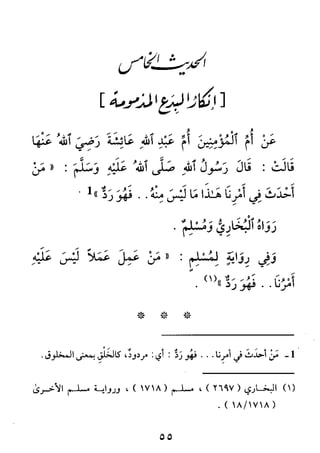 الحديث الخامس
[ إنكار البدع المذمومة ]
عَنْ أُمِّ الْمُؤْمِنِينَ أُمِّ عَبْدِ اللهِ عَائِشَةَ رَضِيَ اللهُ عَنْهَا
قَالَتْ : قَالَ رَسُولُ اللهِ صَلَّى اللهُ عَلَيْهِ وَسَلَّمَ : « مَنْ
أَحْدَثَ فِي أَمْرِنَا هَـٰذَا مَا لَيْسَ مِنْهُ . . فَهُوَ رَدٌّ »1 .
رَوَاهُ الْبُخَارِيُّ وَمُسْلِمٌ .
وَفِي رِوَايَةٍ لِمُسْلِمٍ : « مَنْ عَمِلَ عَمَلاً لَيْسَ عَلَيْهِ
أَمْرُنَا . . فَهُوَ رَدٌّ »(١) .
* * *
1 - مَنْ أحدَثَ في أمرنا . . . فهو رَدٌّ : أي: مردودٌ، كالخَلْقِ بمعنى المخلوق.
(١) البخاري ( ٢٦٩٧ ) ، مسلم ( ١٧١٨ ) ، ورواية مسلم الأخرىٰ
( ١٧١٨/١٨ ) .
٥٥